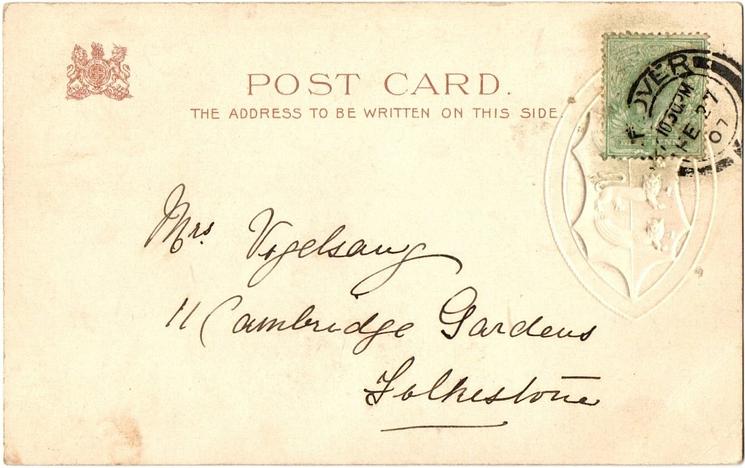 POST CARD.
THE ADDRESS TO BE WRITTEN ON THIS SIDE.
DOVER
10.30PM
FE 27
07
Mrs. Vogelsang
11 Cambridge Gardens
Folkestone